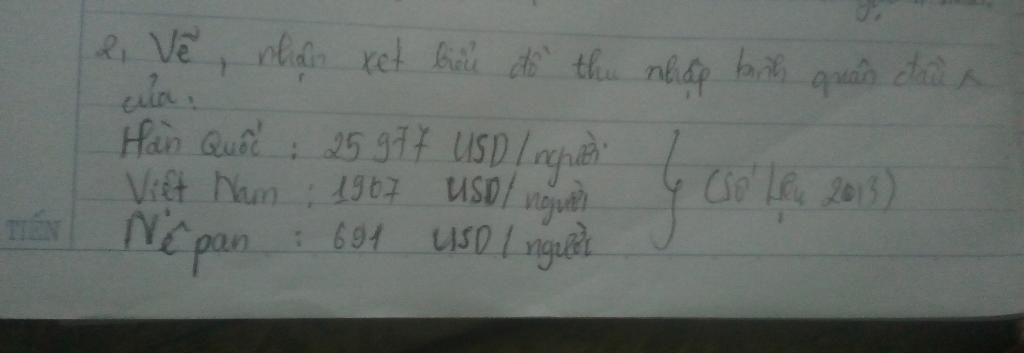 2, Vẽ, nhận xét biểu đồ thu nhập bình quân đầu
của:
Hàn Quốc : 25 977 USD/người
Việt Nam : 1907 USD/người
Nê pan : 691 USD/người
(số liệu 2013)
TIẾN